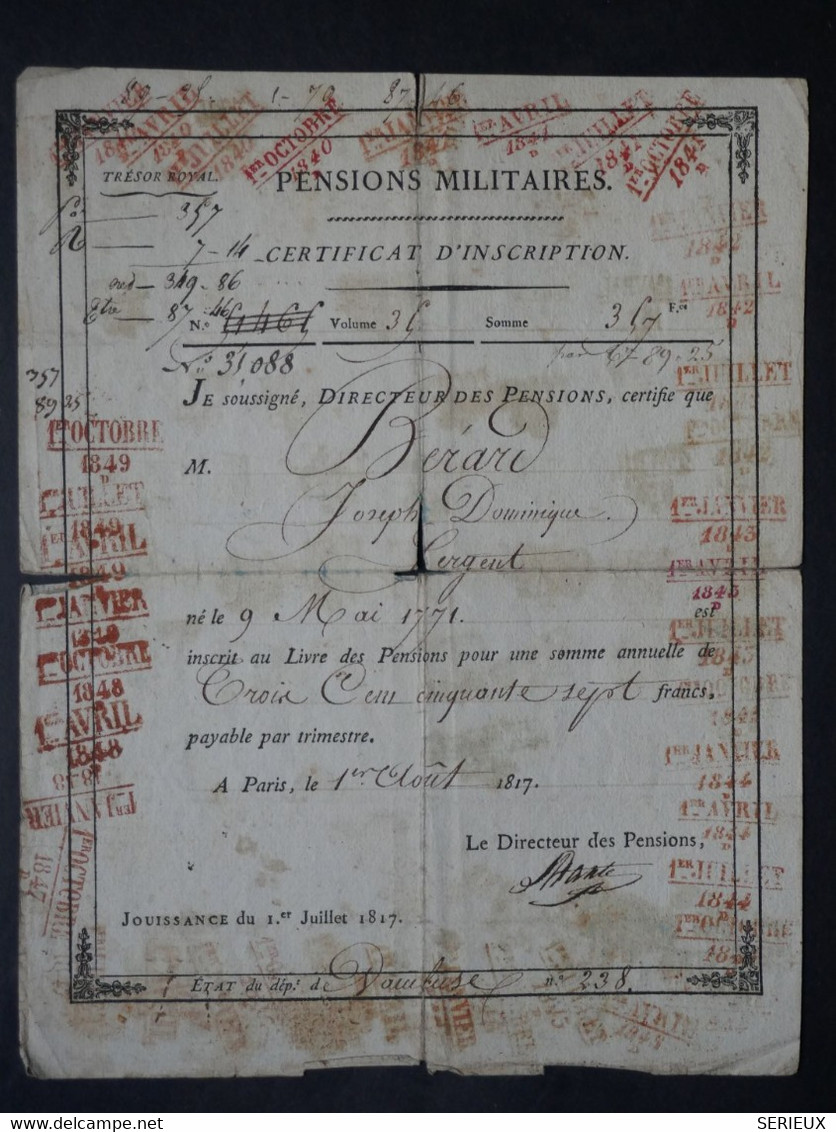 1er AVRIL
1er JUILLET
1er OCTOBRE
1840
1er JANVIER
1er AVRIL
1841
1er JUILLET
1er OCTOBRE
1841
TRÉSOR ROYAL.
PENSIONS MILITAIRES.
357
7-14
CERTIFICAT D'INSCRIPTION.
349-86
87-46
N.º Volume 35 Somme 357 F.cs
N.º 31088
67-89-25
357
89 25
JE soussigné, DIRECTEUR DES PENSIONS, certifie que
M. Bérard
Joseph Dominique.
Sergent
né le 9 Mai 1771. est
inscrit au Livre des Pensions pour une somme annuelle de
Trois Cent cinquante sept francs,
payable par trimestre.
A Paris, le 1er Août 1817.
Le Directeur des Pensions,
JOUISSANCE du 1.er Juillet 1817.
ÉTAT du dép.t de Vaucluse n.º 238.
1er OCTOBRE
1849
1er JUILLET
1849
1er AVRIL
1849
1er JANVIER
1849
1er OCTOBRE
1848
1er AVRIL
1848
1er JANVIER
1848
1er OCTOBRE
1847
1er JANVIER
1842
1er AVRIL
1842
1er JUILLET
1er OCTOBRE
1842
1er JANVIER
1843
1er AVRIL
1843
1er JUILLET
1843
1er OCTOBRE
1er JANVIER
1844
1er AVRIL
1844
1er JUILLET
1844
1er OCTOBRE
SERIEUX
http://www.delcampe.net